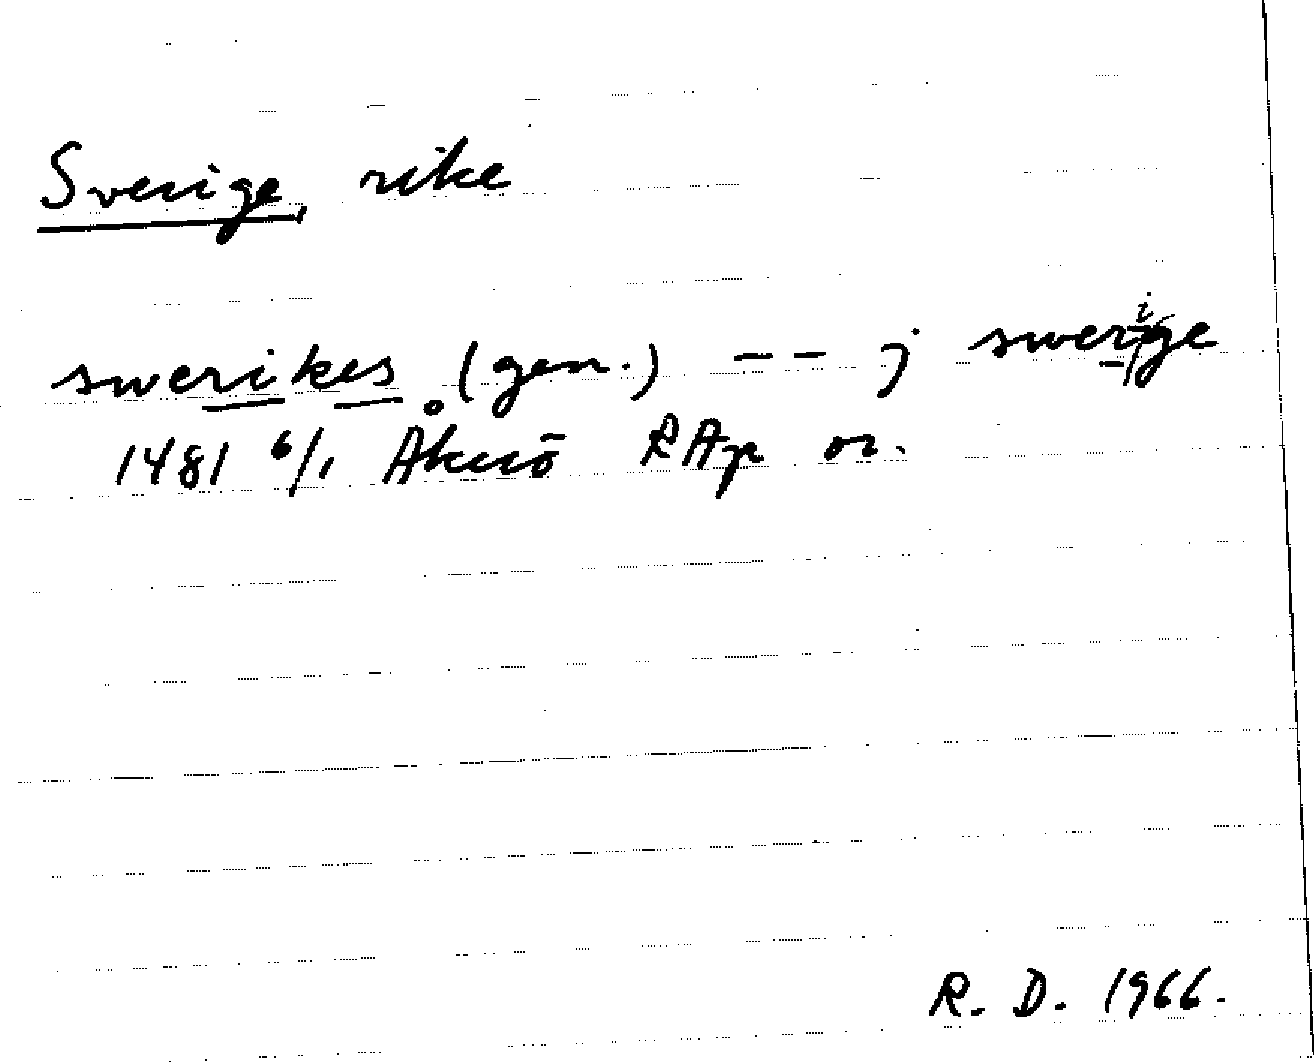 Sverige, rike
swerikes (gen.) -- j swerige
1481 6/1 Åkerö RAp or.
R. D. 1966.